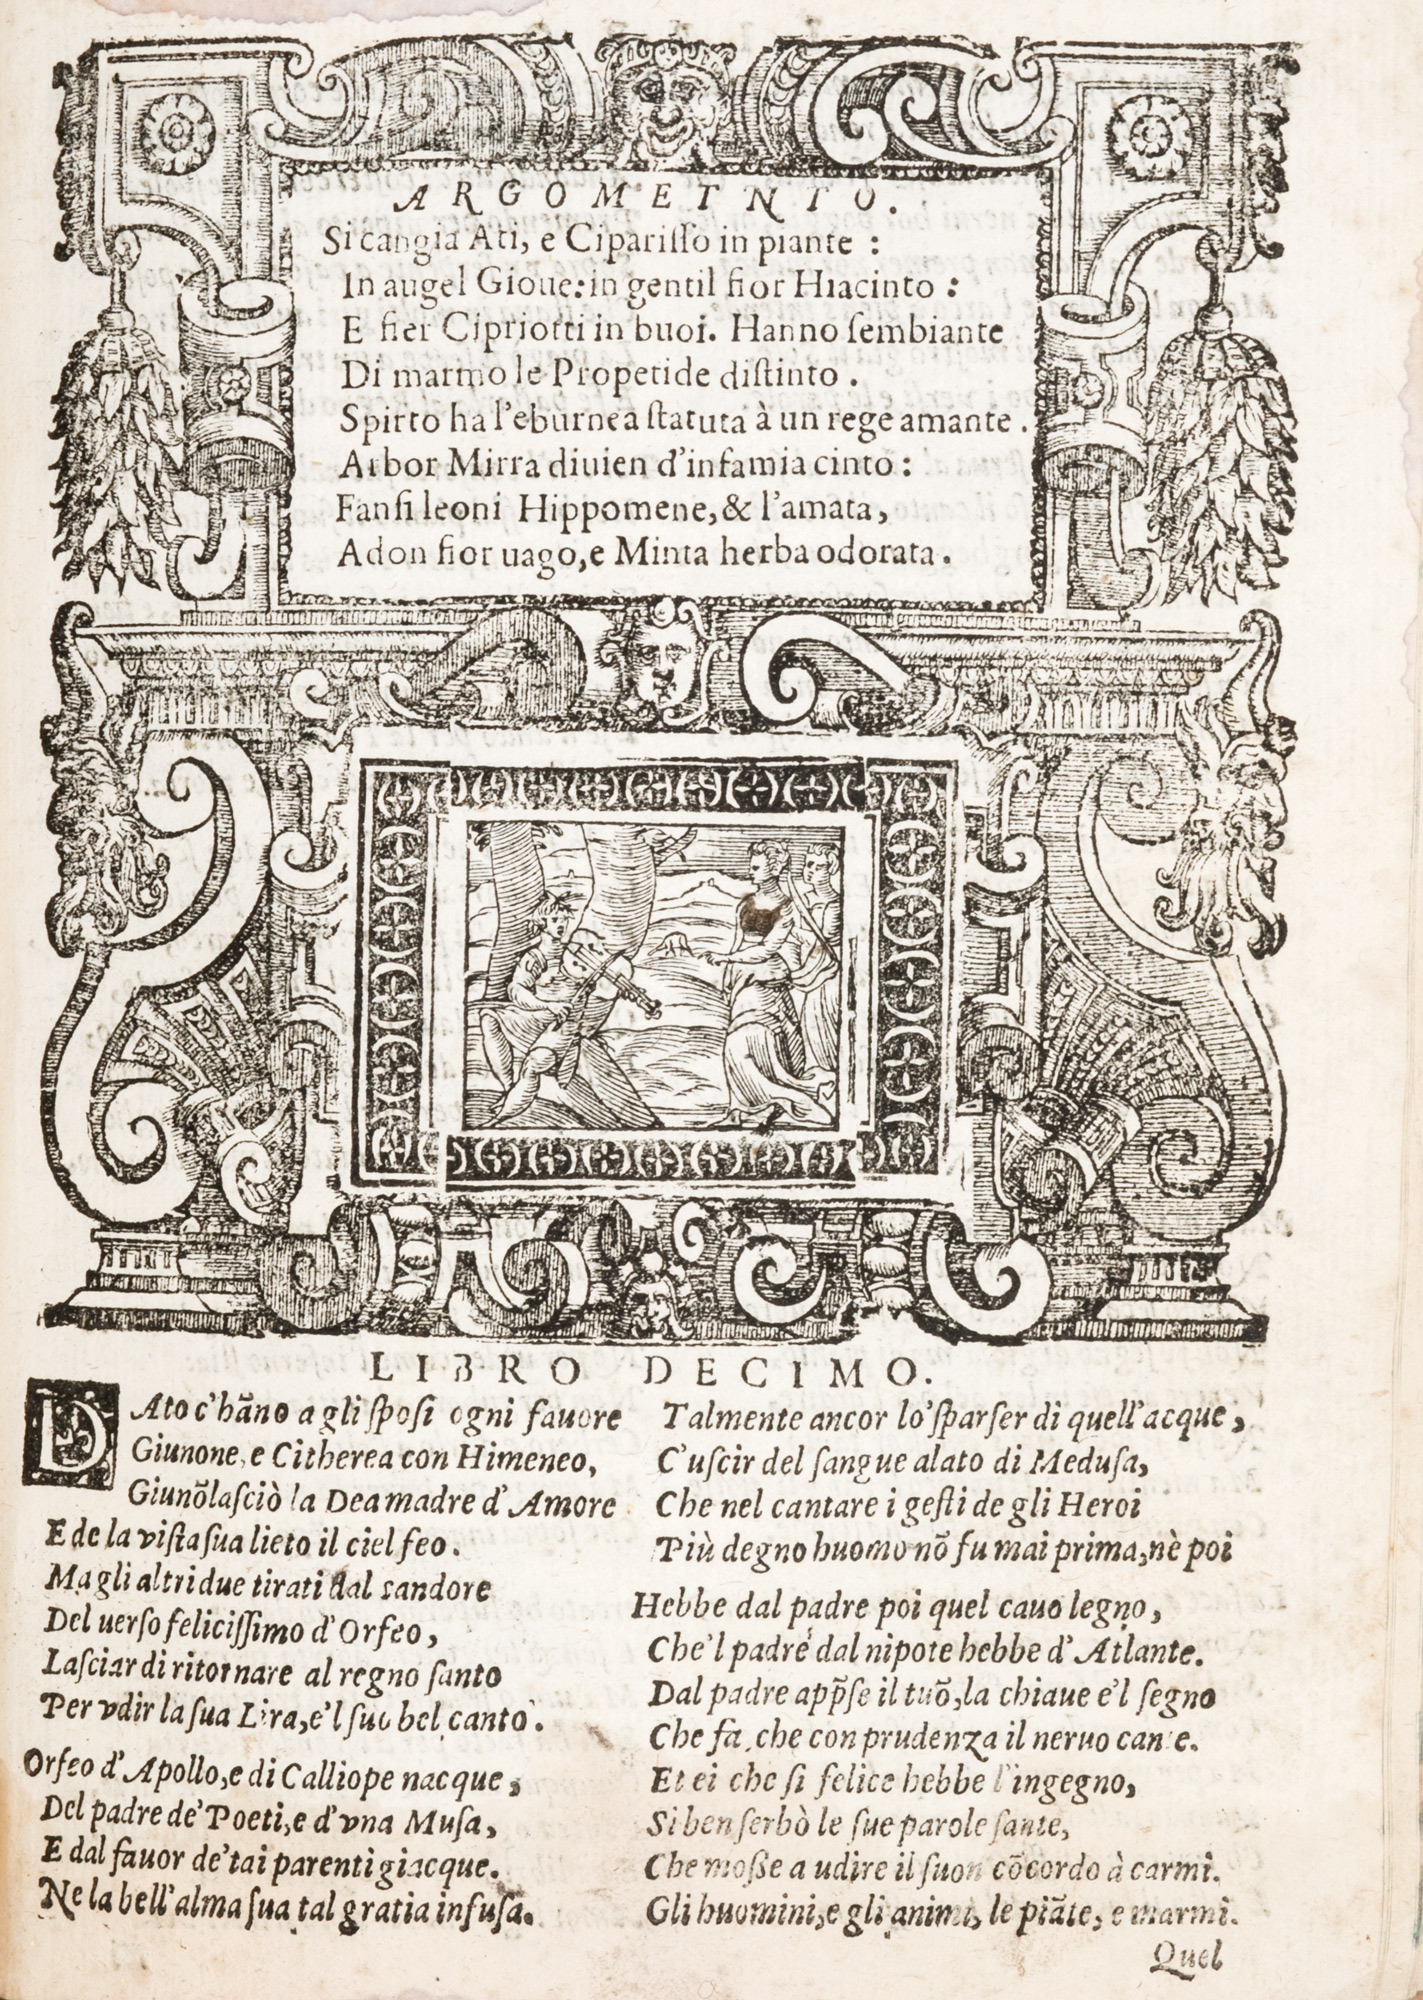 ARGOMETNTO.
Si cangia Ati, e Ciparisso in piante :
In augel Gioue: in gentil fior Hiacinto :
E fier Cipriotti in buoi. Hanno sembiante
Di marmo le Propetide distinto .
Spirto ha l'eburnea statuta à un rege amante .
Arbor Mirra diuien d'infamia cinto :
Fansi leoni Hippomene, & l'amata,
Adon fior uago, e Minta herba odorata .
LIBRO DECIMO.
DAto c'hāno a gli sposi ogni fauore
Giunone, e Citherea con Himeneo,
Giunō lasciò la Dea madre d'Amore
E de la vista sua lieto il ciel feo.
Ma gli altri due tirati dal candore
Del uerso felicissimo d'Orfeo,
Lasciar di ritornare al regno santo
Per vdir la sua Lira, e'l suo bel canto.
Orfeo d'Apollo, e di Calliope nacque,
Del padre de' Poeti, e d'vna Musa,
E dal fauor de' tai parenti giacque.
Ne la bell'alma sua tal gratia infusa.
Talmente ancor lo'sparser di quell'acque,
C'uscir del sangue alato di Medusa,
Che nel cantare i gesti de gli Heroi
Più degno huomo nō fu mai prima, nè poi
Hebbe dal padre poi quel cauo legno,
Che'l padre dal nipote hebbe d'Atlante.
Dal padre app̄se il tuō, la chiaue e'l segno
Che fa, che con prudenza il neruo cante.
Et ei che si felice hebbe l'ingegno,
Si ben serbò le sue parole sante,
Che mosse a udire il suon cōcordo à carmi.
Gli huomini, e gli animi, le piāte, e marmi.
Quel